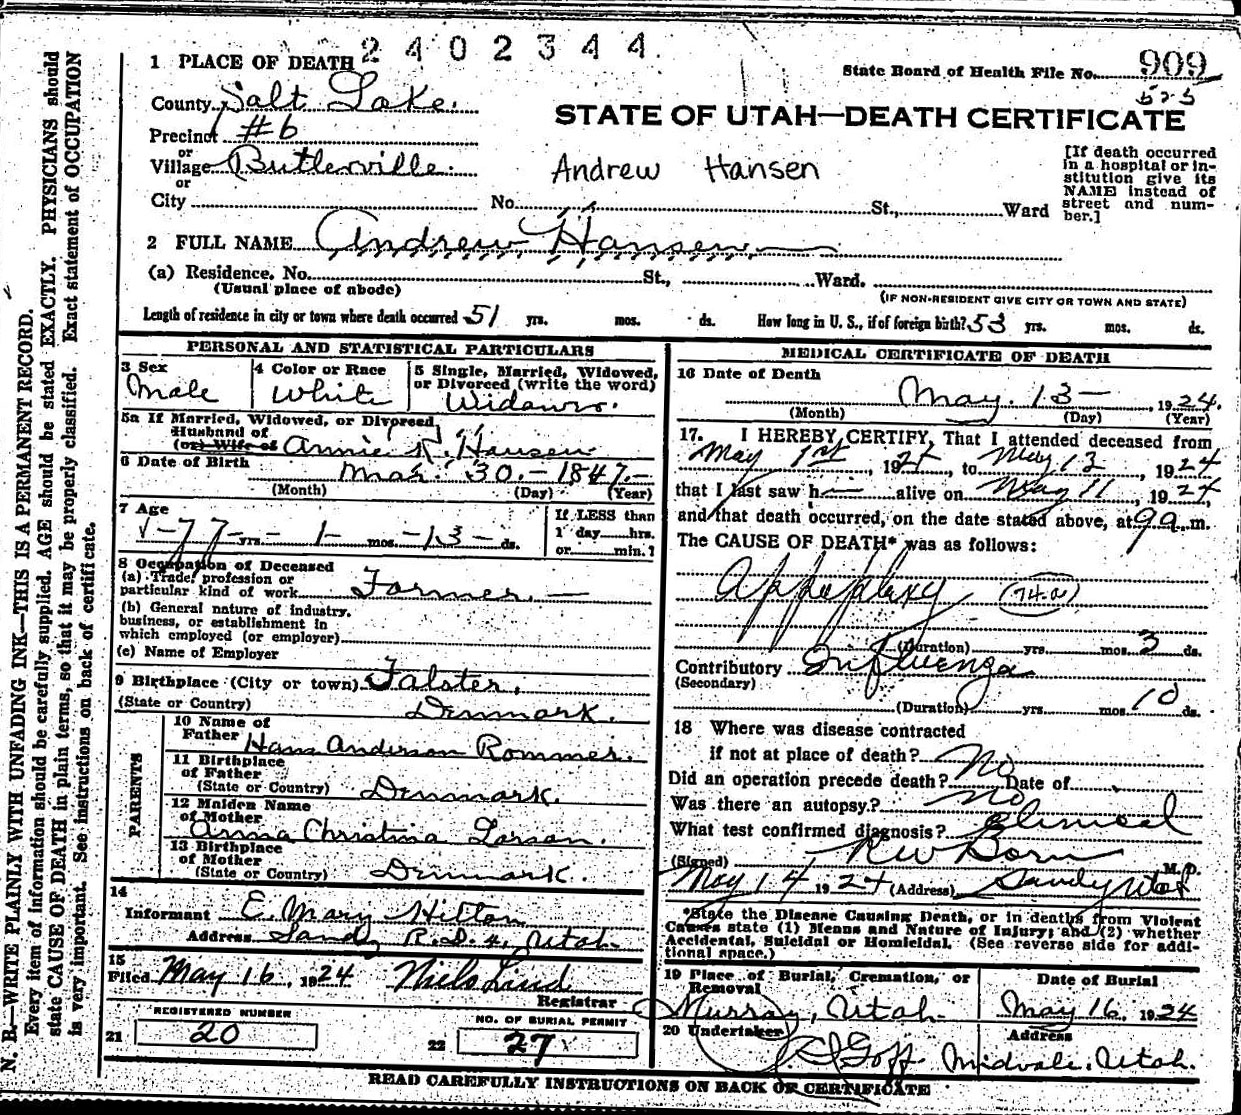 2402344
1 PLACE OF DEATH
State Board of Health File No. 909
525
County Salt Lake.
STATE OF UTAH—DEATH CERTIFICATE
Precinct #6
or
Village Butlerville.
Andrew Hansen
[If death occurred in a hospital or institution give its NAME instead of street and number.]
or
City No. St., Ward
2 FULL NAME Andrew Hansen
(a) Residence. No. St., Ward.
(Usual place of abode)
(IF NON-RESIDENT GIVE CITY OR TOWN AND STATE)
Length of residence in city or town where death occurred 51 yrs. mos. ds. How long in U. S., if of foreign birth? 53 yrs. mos. ds.
PERSONAL AND STATISTICAL PARTICULARS
3 Sex
Male
4 Color or Race
White
5 Single, Married, Widowed, or Divorced (write the word)
Widower.
5a If Married, Widowed, or Divorced
Husband of
(or) Wife of Annie K. Hansen
6 Date of Birth Mar. 30.-1847.-
(Month) (Day) (Year)
7 Age
77 yrs. 1 mos. 13 ds.
If LESS than
1 day hrs.
or min.?
8 Occupation of Deceased
(a) Trade, profession or
particular kind of work Farmer.
(b) General nature of industry,
business, or establishment in
which employed (or employer)
(c) Name of Employer
9 Birthplace (City or town) Falster,
(State or Country) Denmark.
PARENTS
10 Name of
Father Hans Anderson Rommes.
11 Birthplace
of Father
(State or Country) Denmark.
12 Maiden Name
of Mother
Anna Christina Larson.
13 Birthplace
of Mother
(State or Country) Denmark.
14
Informant E. Mary Hilton
Address Sandy R.D. Utah
15
Filed May 16, 1924 Niels Lind
Registrar
REGISTERED NUMBER
21 20
NO. OF BURIAL PERMIT
22 27
MEDICAL CERTIFICATE OF DEATH
16 Date of Death
May. 13-, 1924.
(Month) (Day) (Year)
17. I HEREBY CERTIFY, That I attended deceased from
May 1st, 1924, to May 13, 1924
that I last saw h alive on May 11, 1924,
and that death occurred, on the date stated above, at 9 a. m.
The CAUSE OF DEATH* was as follows:
Appoplexy (74.a)
(Duration) yrs. mos. 3 ds.
Contributory Influenza
(Secondary)
(Duration) yrs. mos. 10 ds.
18 Where was disease contracted
if not at place of death?
Did an operation precede death? No Date of
Was there an autopsy? No
What test confirmed diagnosis? Clinical
(Signed) R W Born M.D.
May 14 1924 (Address) Sandy Utah
*State the Disease Causing Death, or in deaths from Violent
Causes state (1) Means and Nature of Injury; and (2) whether
Accidental, Suicidal or Homicidal. (See reverse side for addi-
tional space.)
19 Place of Burial, Cremation, or
Removal
Murray, Utah
Date of Burial
May 16, 1924
20 Undertaker
Goff
Address
Midvale, Utah.
READ CAREFULLY INSTRUCTIONS ON BACK OF CERTIFICATE
N. B.—WRITE PLAINLY WITH UNFADING INK—THIS IS A PERMANENT RECORD.
Every item of information should be carefully supplied. AGE should be stated EXACTLY. PHYSICIANS should
state CAUSE OF DEATH in plain terms, so that it may be properly classified. Exact statement of OCCUPATION
is very important. See instructions on back of certificate.